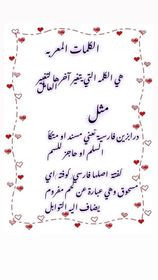 الكلمات المعربه
هي الكلمه التي يتغير آخرها لتغير العامل
مثل
درابزين فارسية تعني مسند او متكأ
السلم او حاجز للسم
كفتة اصلها فارسي كوفته اي
مسحوق وهي عبارة عن لحم مفروم
يضاف اليه التوابل